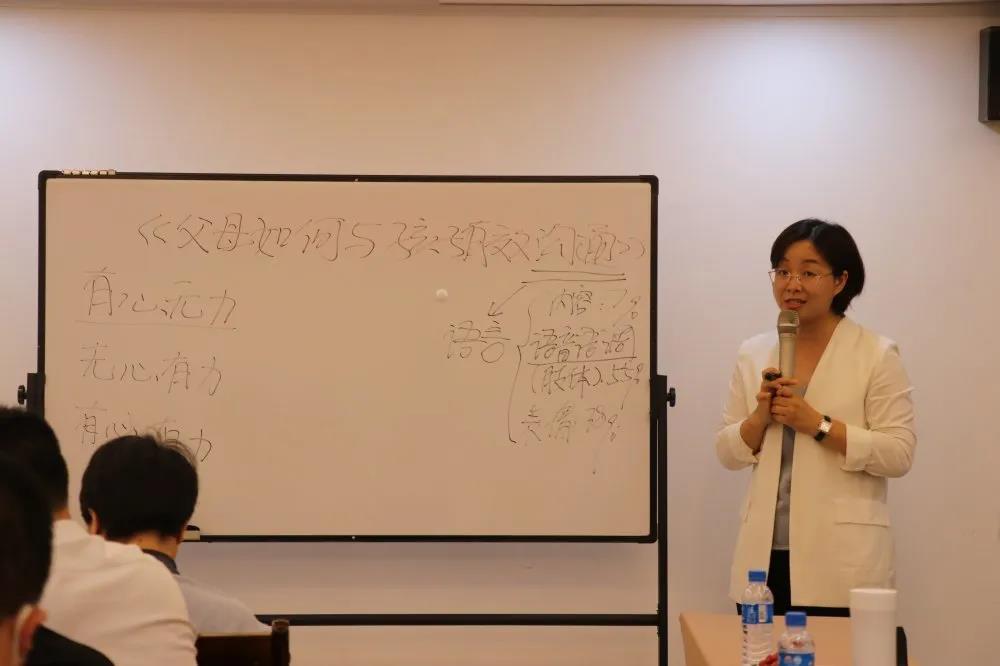 《父母如何与孩子有效沟通》
有心、无力
无心、有力
有心、有力
语言
内容:7%
语音语调
(肢体).55%
表情